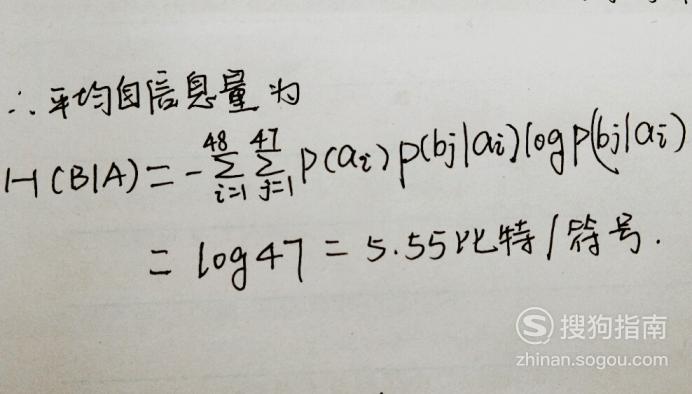 ∴ 平均自信息量为
H(B|A) = -∑_{i=1}^{48} ∑_{j=1}^{47} p(a_i) p(b_j|a_i) log p(b_j|a_i)
= log47 = 5.55比特/符号.
搜狗指南
zhinan.sogou.com